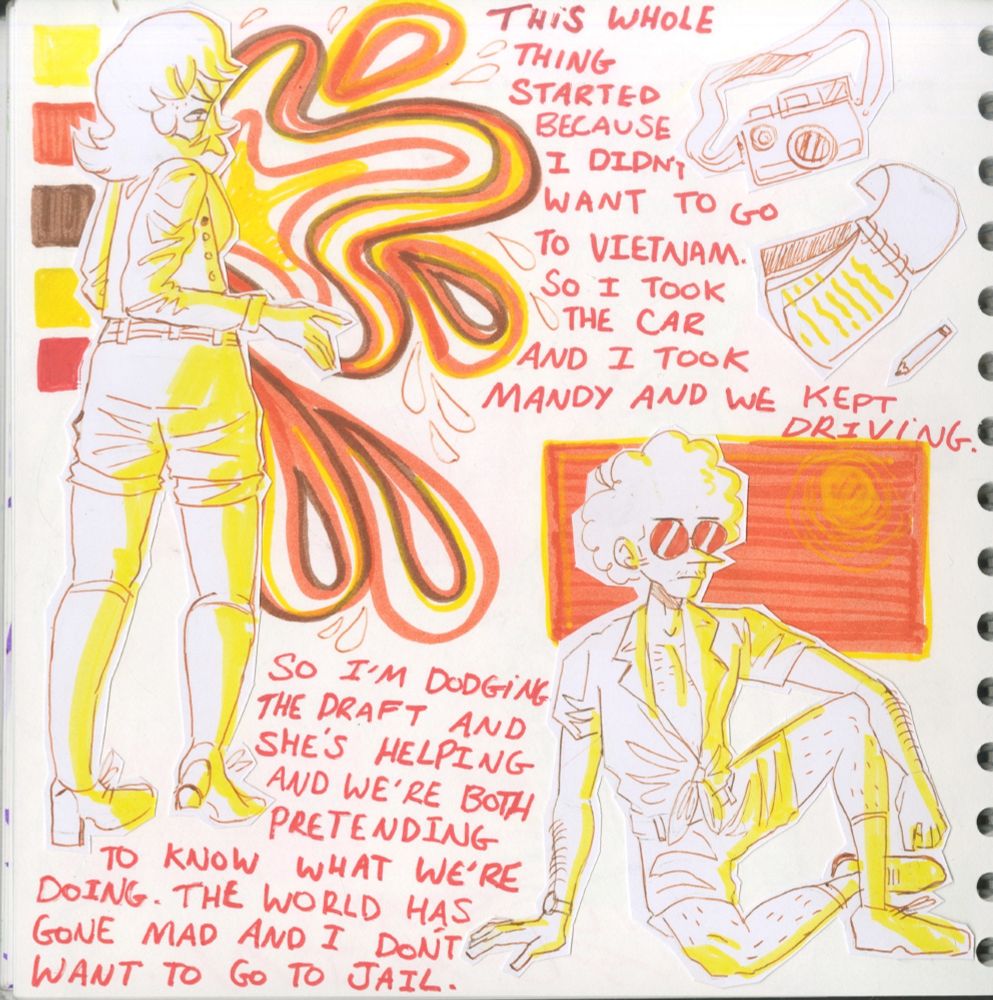 THIS WHOLE
THING
STARTED
BECAUSE
I DIDN'T
WANT TO GO
TO VIETNAM.
SO I TOOK
THE CAR
AND I TOOK
MANDY AND WE KEPT
DRIVING.
SO I'M DODGING
THE DRAFT AND
SHE'S HELPING
AND WE'RE BOTH
PRETENDING
TO KNOW WHAT WE'RE
DOING. THE WORLD HAS
GONE MAD AND I DON'T
WANT TO GO TO JAIL.